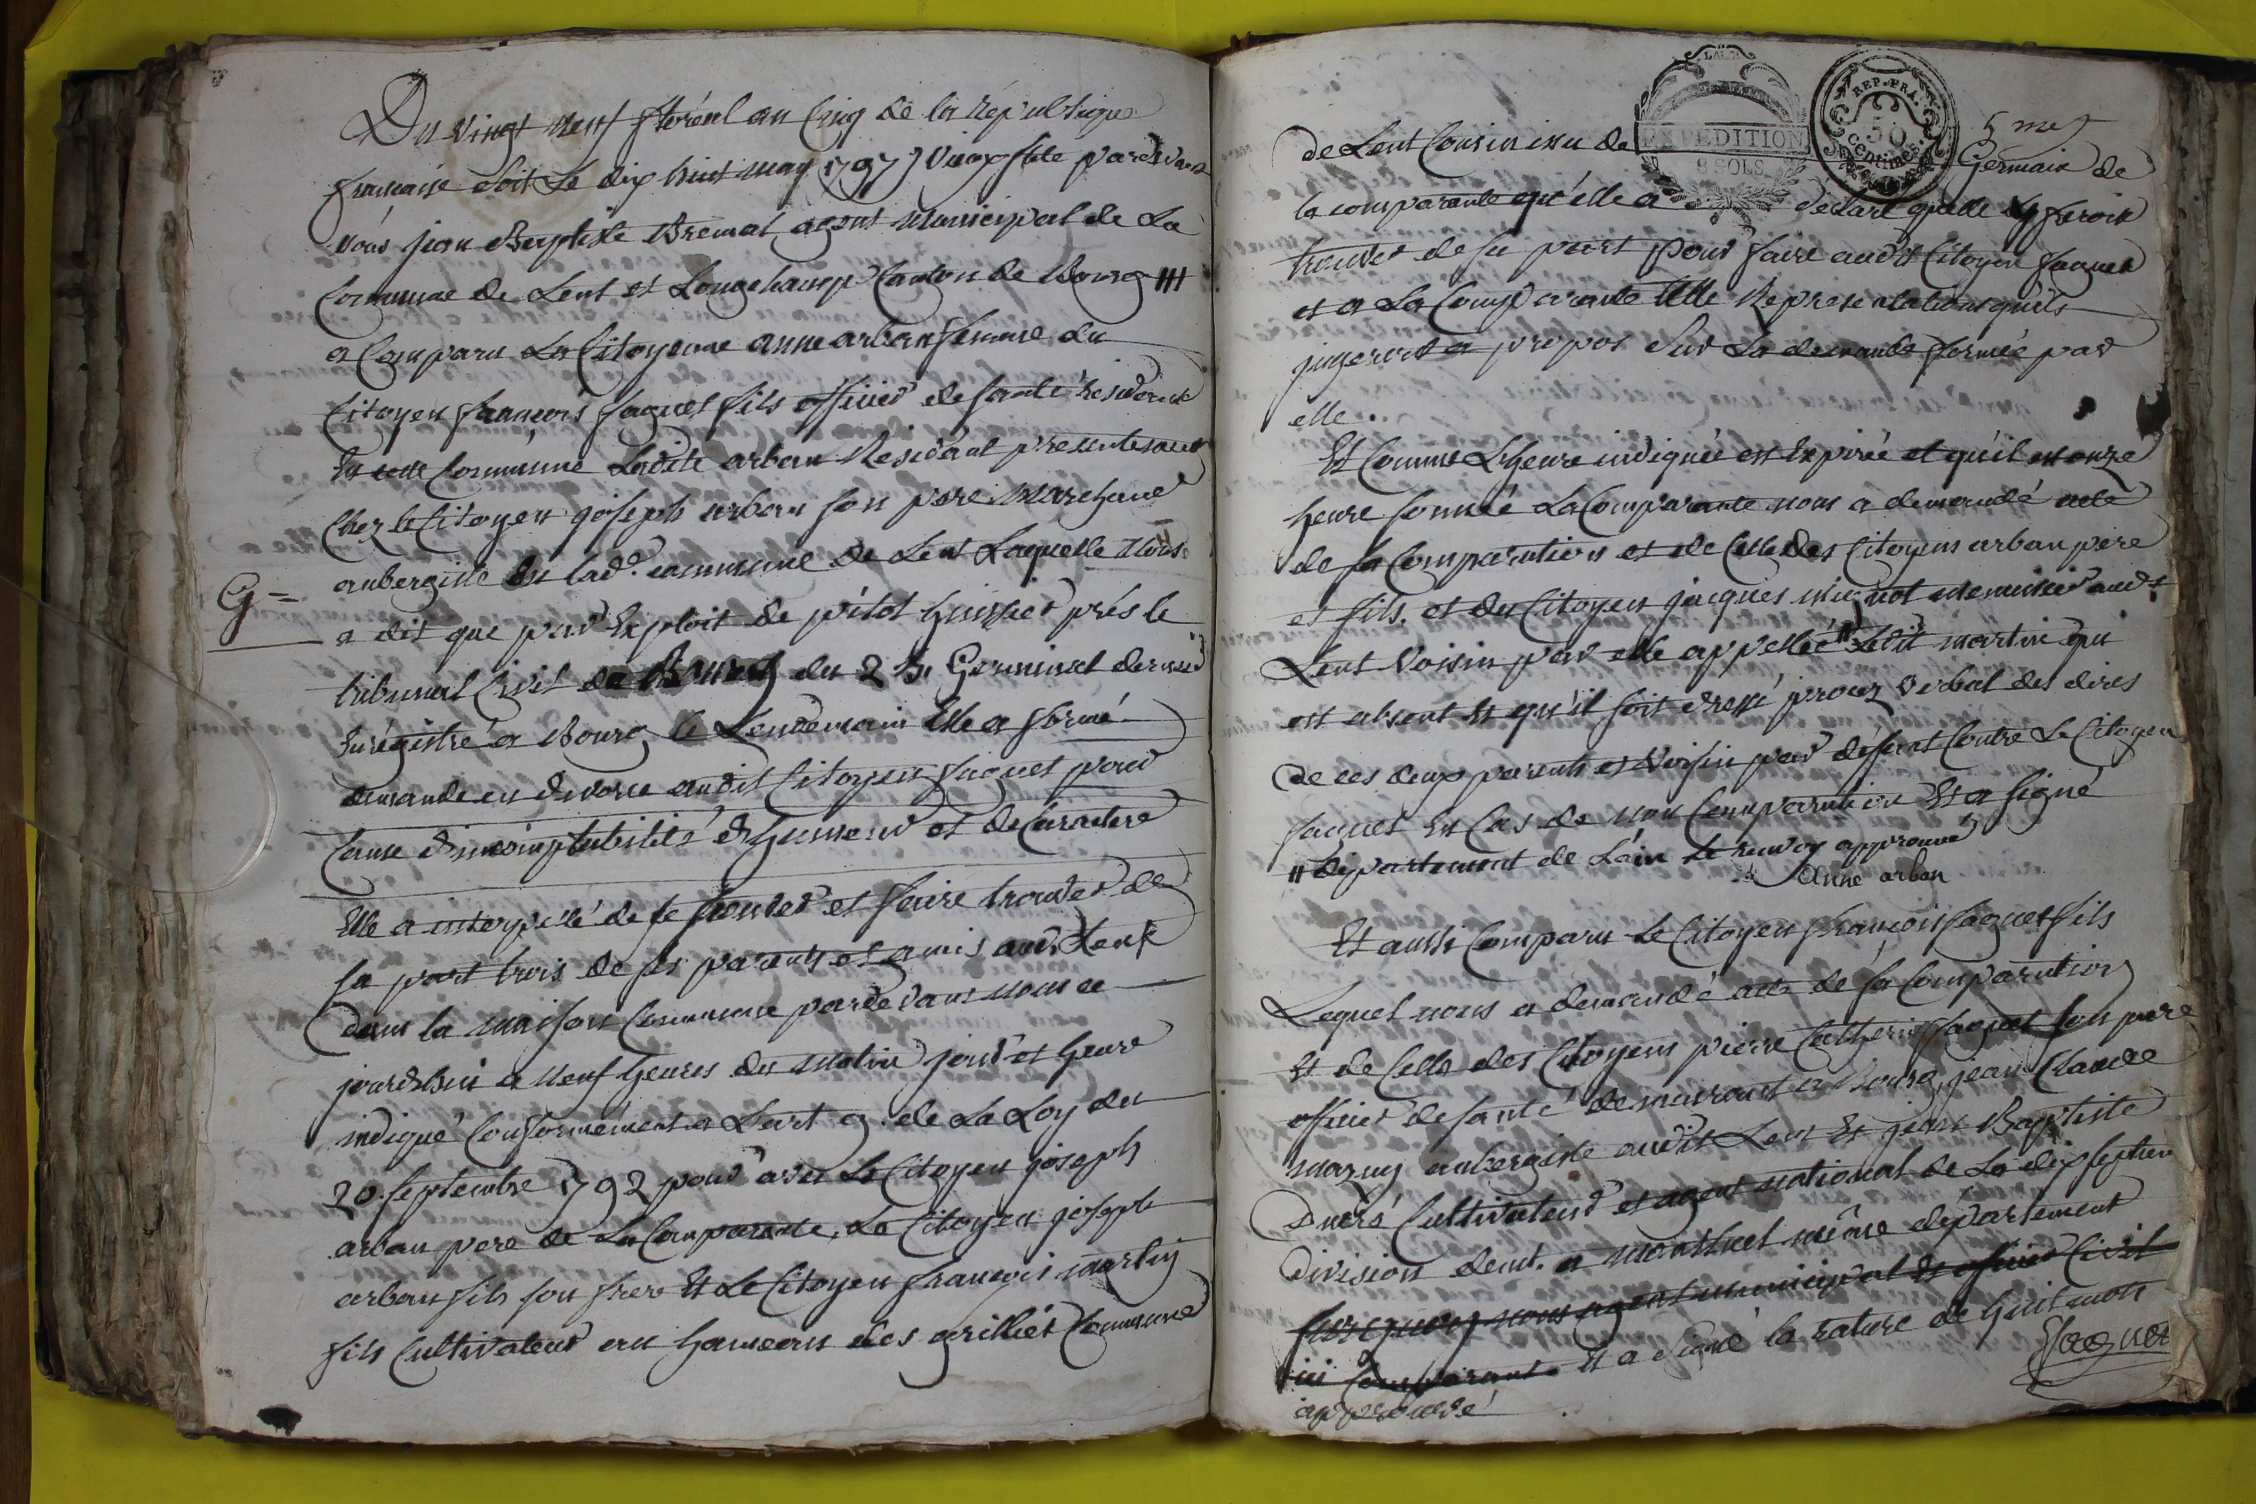 Du vingt neuf floréal an Cinq de la République
francaise soit Le dix huit may 1797 vieux stile pardevant
nous jean Baptiste Bremal agent municipal de La
Commune de Lent et Longchamp Canton de Bourg III
a Comparu La Citoyenne anne arban femme du
Citoyen francois faguet fils officier de santé residente
En cette Commune Ladite arban Residant presentement
Chez le Citoyen joseph arban son pere marchand
aubergiste En lad.e commune de Lent Laquelle Nous
G=
a dit que par Exploit de pitot huissier prés le
tribunal Civil de Bourg du 25 Germinal dernier
Enrégistré a Bourg le Lendemain Elle a formé
demande en divorce audit Citoyen faguet pour
Cause d'incomptabilité d'humeur et de Caractere
Elle a interpellé de se trouver et faire trouver de
sa part trois de ses parents et amis aud. Lent
dans la maison Commune pardevant nous ce
jourdhui a neuf heures du matin jour et heure
indiqué Conformément a Lart 9. de La Loy du
20. septembre 1792 pour avec Le Citoyen joseph
arban pere de La Comparante, Le Citoyen joseph
arban fils son frere Et Le Citoyen francois martin
fils Cultivateur au hameau des grilliet Commune
5 me
de Lent Cousin issu de Germain de
EXPEDITION
8 SOLS
REP. FRA.
50
centimes.
la comparante qu'elle a déclaré quelle y feroit
trouver de sa part pour faire audit Citoyen faguet
et a La Comparante telle Representations quils
jugeront a propos sur La demande formée par
elle.
Et Comme L'heure indiquée est Expirée et qu'il est onze
heure sonnée La Comparante nous a demandé acte
de sa Comparution et de Celle des Citoyens arban père
et fils. et du Citoyen jacques mignot menuisier aud.t
Lent Voisin par elle appellée Ledit martin qui
est absent Et qu'il soit dressé procez verbal des dires
de ces deux parents et Voisin par défaut Contre Le Citoyen
faguet En Cas de non Comparution Et a signé
" département de L'ain le renvoy approuvé
anne arban
Et aussi Comparu Le Citoyen francois faguet fils
Lequel nous a demandé acte de sa Comparution
Et de Celle des Citoyens pierre Catherin faguet son père
officier de santé demeurant a Bourg, jean Claude
mazuy aubergiste audit Lent Et jean Baptiste
Cultivateur et agent national de La dix septieme
Division demt. a montluel même département
sur quoy nous agent municipal Et officier Civil
Et a Signé la rature de huit mots
approuvé
Faguet